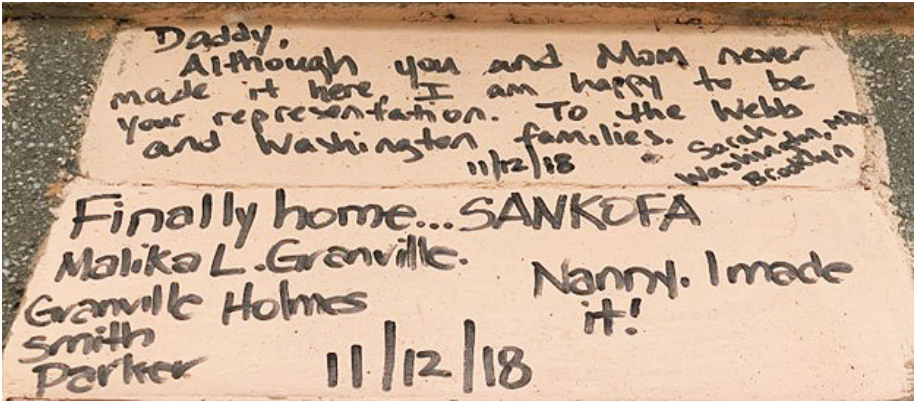 Daddy,
Although you and Mom never
made it here, I am happy to be
your representation. To the Webb
and Washington families.
11/12/18
Sarah
Washington, MD
Brooklyn
Finally home...SANKOFA
Malika L. Granville.
Granville Holmes
Smith
Parker
Nanny. I made
it!
11/12/18